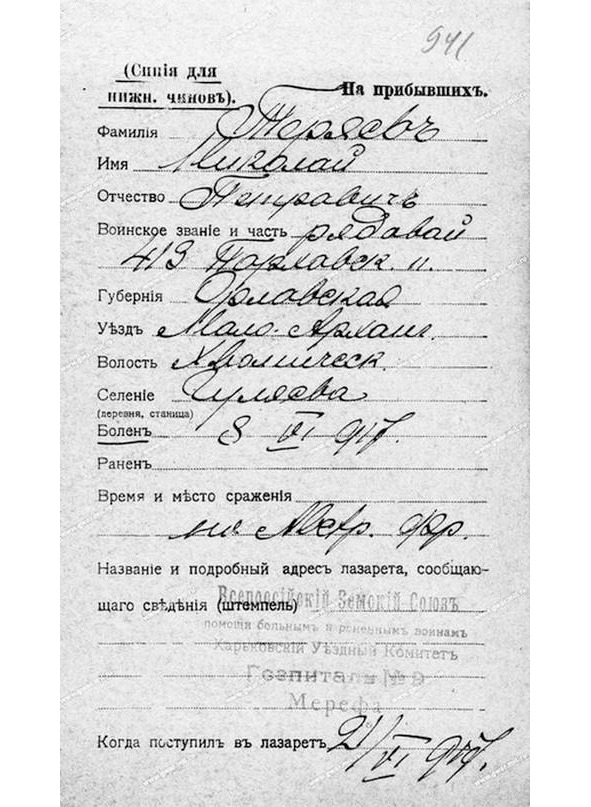 941
(Синія для
нижн. чиновъ).
На прибывшихъ.
Фамилія Теряевъ
Имя Николай
Отчество Петравичъ
Воинское званіе и часть рядавай
413 Порховск. п.
Губернія Орлавская
Уѣздъ Мало-Арханг.
Волость
Селеніе Гуляева
(деревня, станица)
Боленъ 8 VI 917.
Раненъ
Время и мѣсто сраженія
на Австр. фр.
Названіе и подробный адресъ лазарета, сообщаю-
щаго свѣдѣнія (штемпель)
Всероссійскій Земскій Союзъ
помощи больнымъ и раненнымъ воинамъ
Харьковскій Уѣздный Комитетъ
Госпиталь № 9
Мерефа
Когда поступилъ въ лазаретъ 21/VI 917.